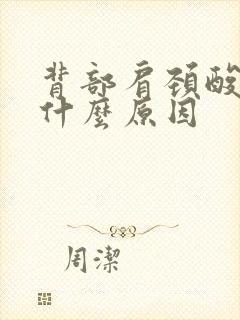 背部肩颈酸
什麼原因
周潔